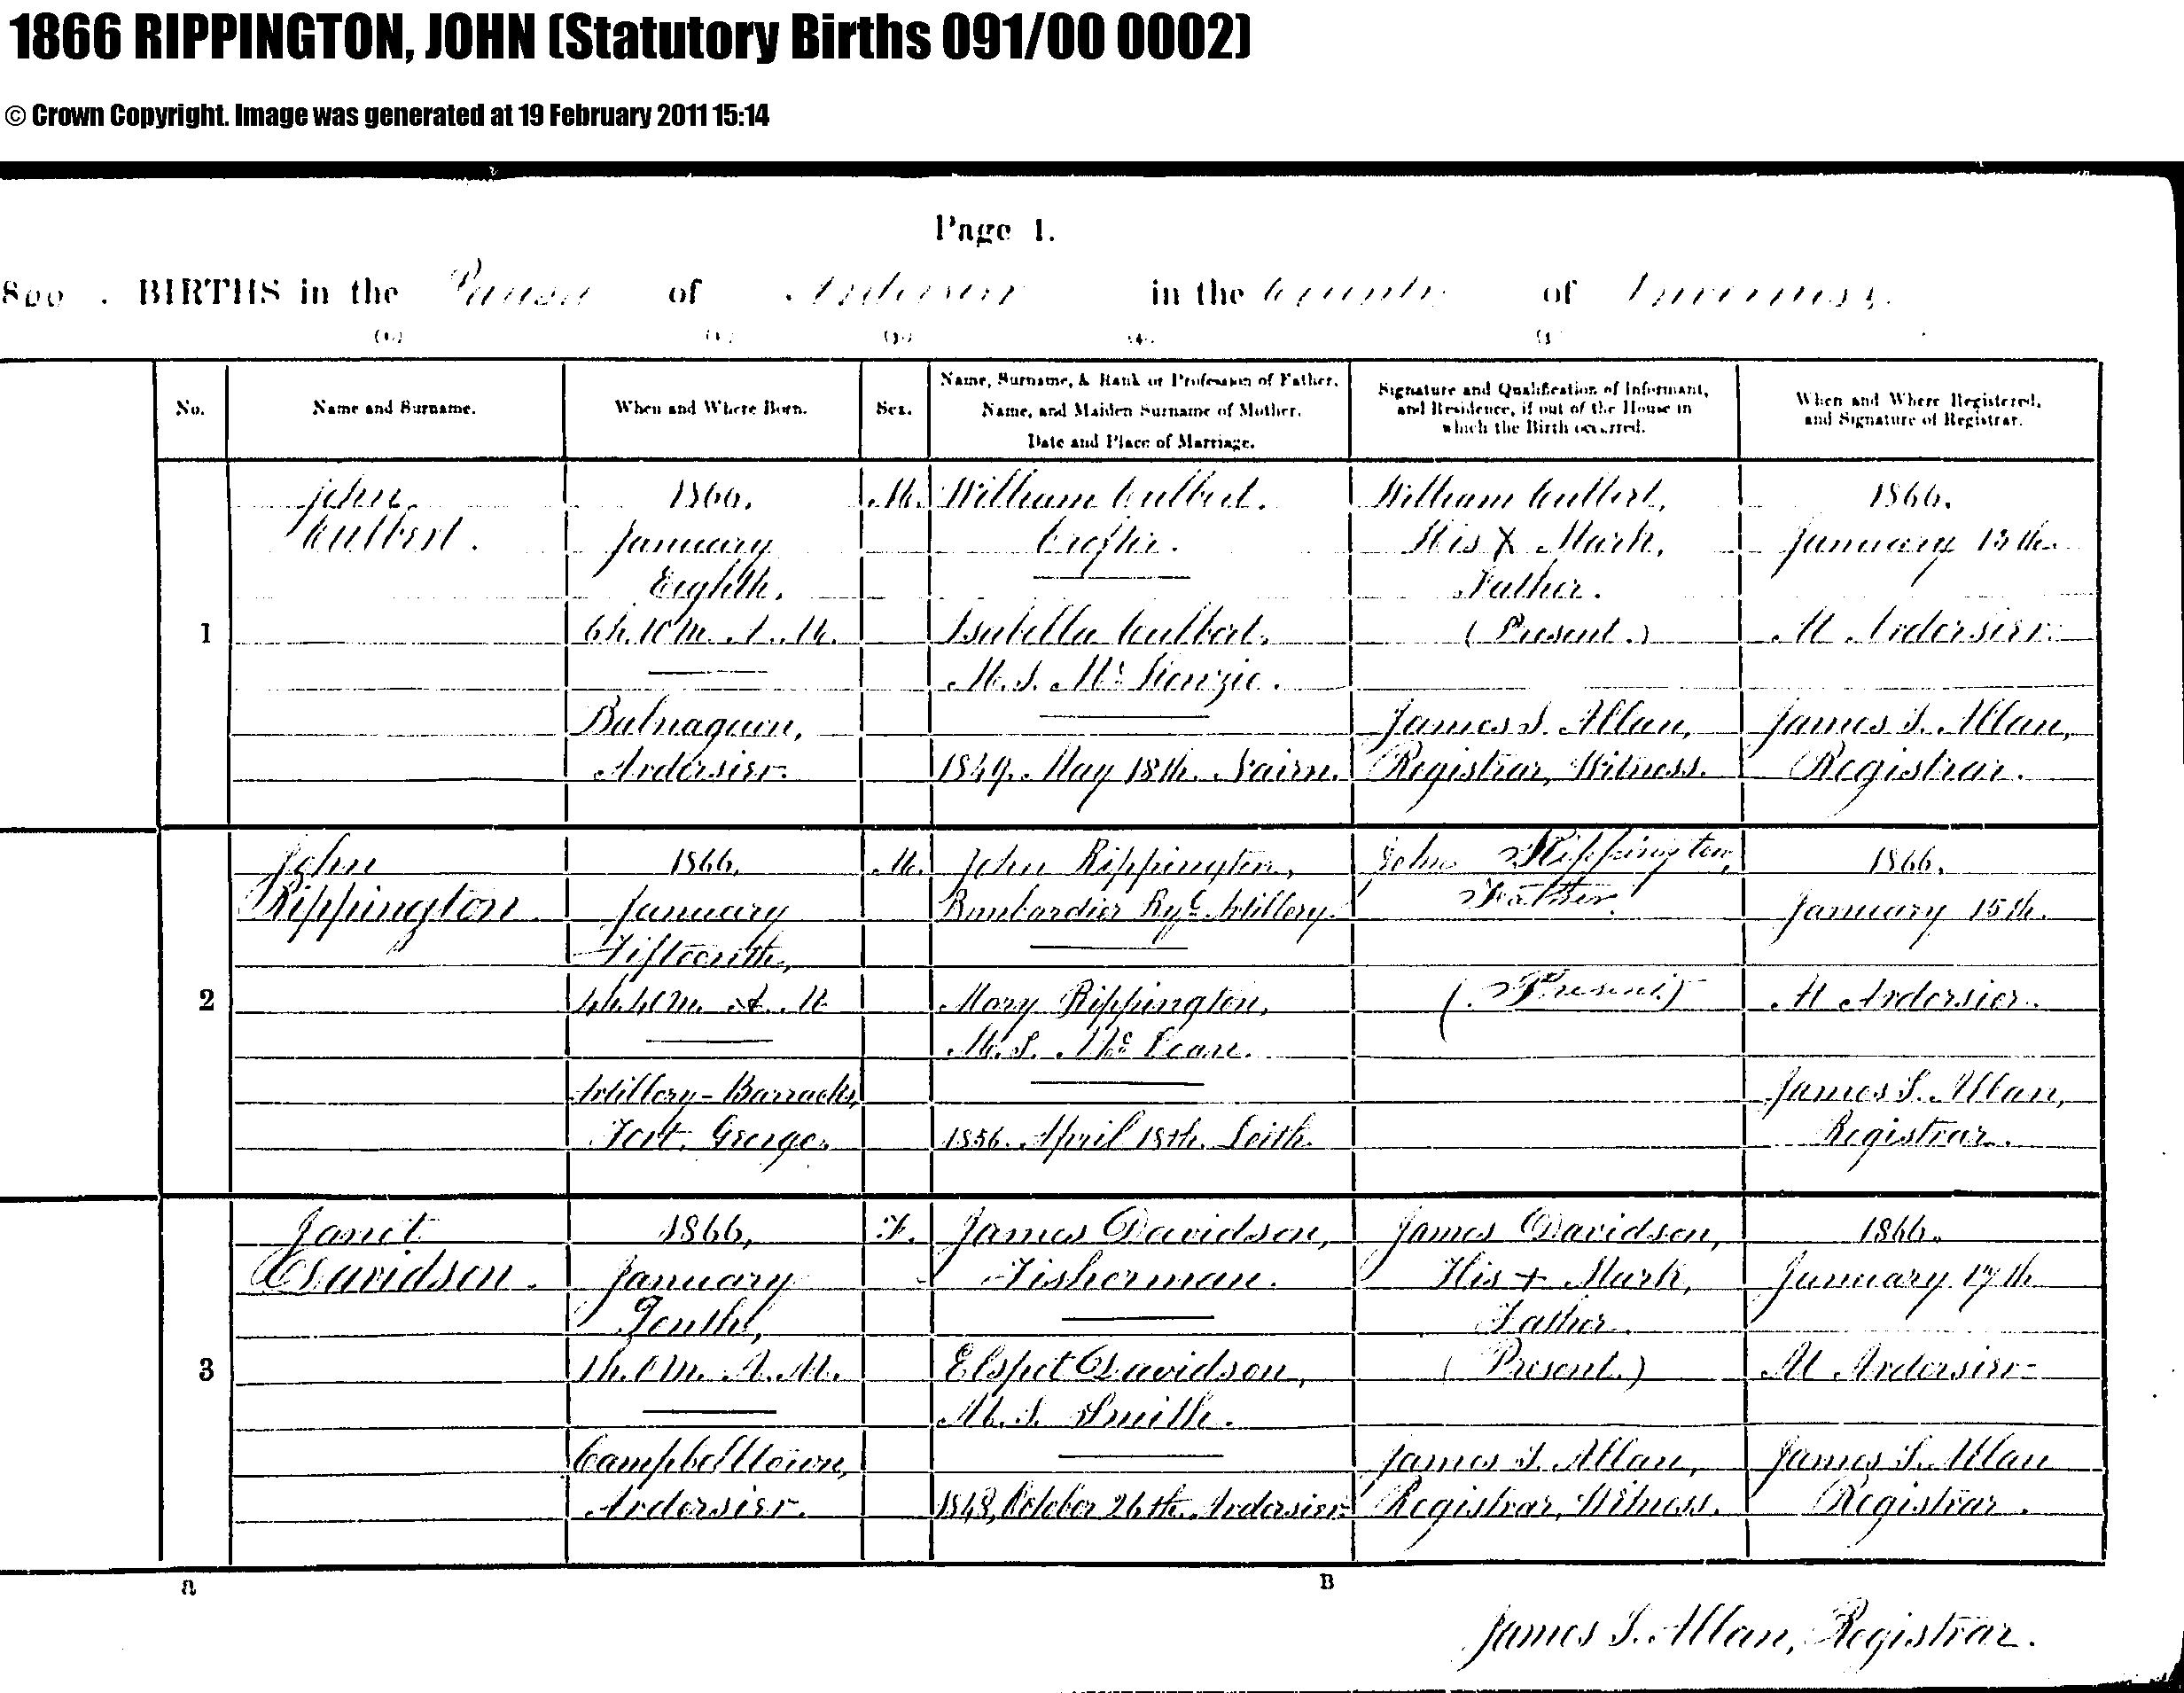 1866 RIPPINGTON, JOHN (Statutory Births 091/00 0002)
© Crown Copyright. Image was generated at 19 February 2011 15:14
Page 1.
BIRTHS in the Parish of Ardersier in the County of Inverness.
No.
Name and Surname.
When and Where Born.
Sex.
Name, Surname, & Rank or Profession of Father.
Name, and Maiden Surname of Mother.
Date and Place of Marriage.
Signature and Qualification of Informant,
and Residence, if out of the House in
which the Birth occurred.
When and Where Registered,
and Signature of Registrar.
1
John
Culbert.
1866,
January
Eighth,
6h. 10m. A. M.
Balnagown,
Ardersier.
M.
William Culbert.
Crofter.
Isabella Culbert,
M.S. McKenzie.
1849. May 18th. Nairn.
William Culbert,
His X Mark,
Father.
(Present.)
James S. Allan,
Registrar, Witness.
1866.
January 13th.
At Ardersier.
James S. Allan,
Registrar.
2
John
Rippington
1866,
January
Fifteenth,
A. M.
Artillery-Barracks,
Fort. George.
M.
John Rippington,
Bombardier Ryl. Artillery.
Mary Rippington,
M.S. McLean.
1856. April 18th. Leith.
John Rippington,
Father.
(Present.)
1866.
January 15th.
At Ardersier.
James S. Allan,
Registrar.
3
Janet
Davidson.
1866,
January
Tenth,
1h. 0m. A.M.
Campbelltown,
Ardersier.
F.
James Davidson,
Fisherman.
Elspet Davidson,
M.S. Smith.
1848, October 26th. Ardersier.
James Davidson,
His + Mark,
Father.
(Present.)
James S. Allan,
Registrar, Witness.
1866.
January 17th
At Ardersier
James S. Allan
Registrar.
A
B
James S. Allan, Registrar.